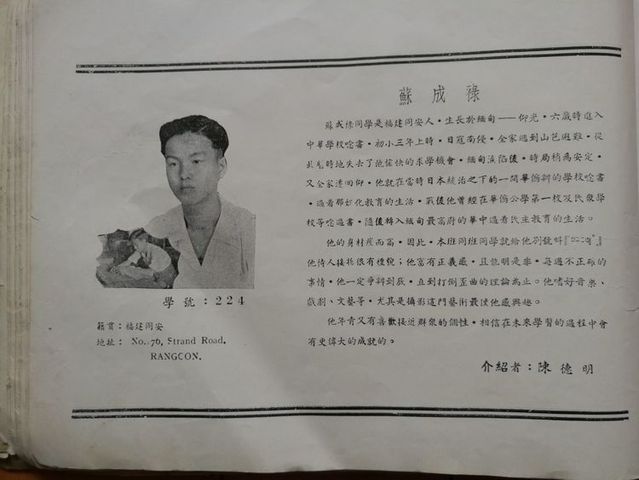 蘇成祿
蘇成祿同學是福建同安人・生長於緬甸——仰光・六歲時進入
中華學校唸書・初小三年上時・日寇南侵・全家遇到山芭避難・從
此光時地失去了他愉快的求學機會・緬甸淪陷後・時局稍爲安定・
又全家遷回仰・他就在當時日本統治之下的一間華僑辦的學校唸書
・過着那奴化教育的生活・戰後他曾經在華僑公學第一校及民衆學
校等唸過書・隨後轉入緬甸最高府的華中過着民主教育的生活。
他的身材瘦而高・因此・本班同班同學就給他別號叫
他待人接物很有禮貌；他富有正義感・且能明是非・每遇不正確的
事情・他一定爭辯到底・直到打倒歪曲的理論爲止。他嗜好音樂、
戲劇、文藝等・尤其是攝影這門藝術最使他感興趣。
他年青又有喜歡接近群衆的個性・相信在未來學習的過程中會
有更偉大的成就的。
介紹者：陳德明
學號：224
籍貫：福建同安
地址：No. 76, Strand Road,
RANGCON.